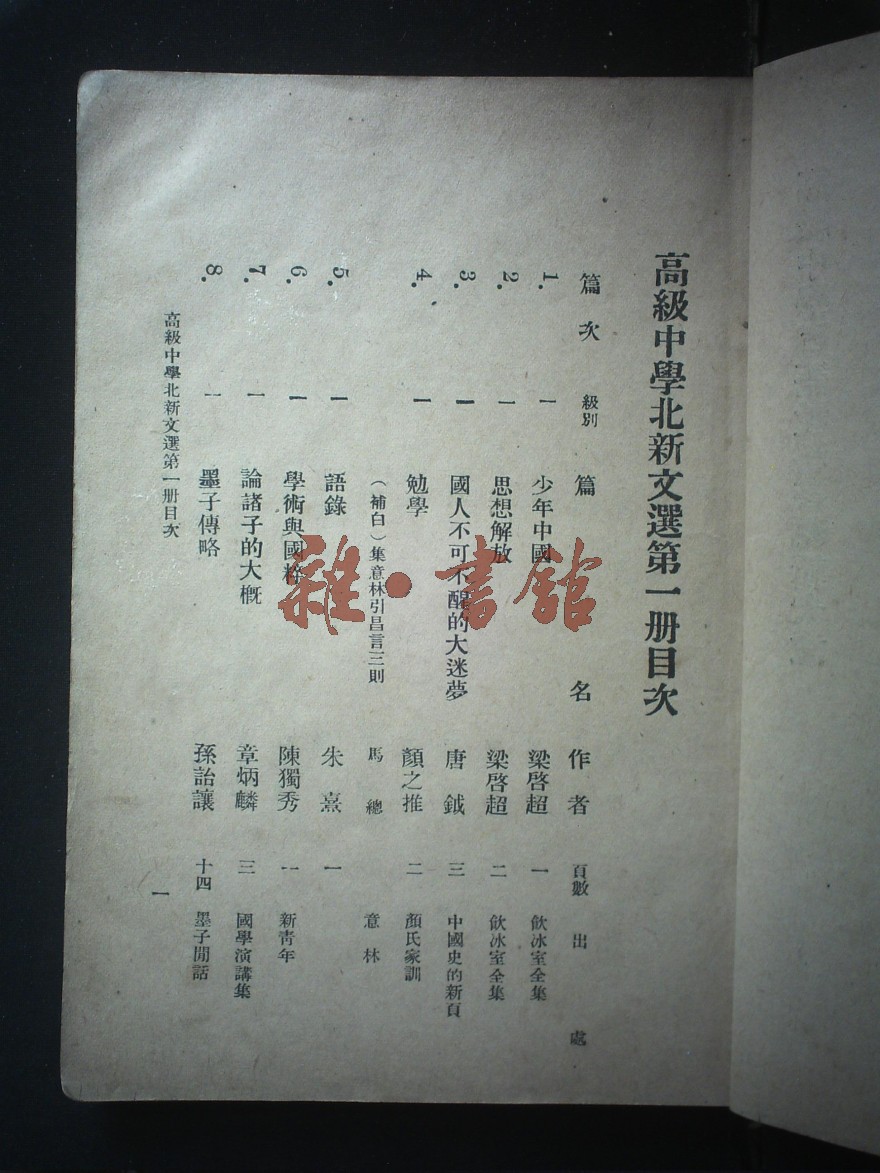 高級中學北新文選第一册目次
篇次 級別 篇名 作者 頁數 出處
1. 一 少年中國 梁啓超 一 飲冰室全集
2. 一 思想解放 梁啓超 二 飲冰室全集
3. 一 國人不可不醒的大迷夢 唐鉞 三 中國史的新頁
4. 一 勉學 顏之推 二 顏氏家訓
（補白）集意林引昌言三則 馬總 意林
5. 一 語錄 朱熹 一
6. 一 學術與國粹 陳獨秀 一 新青年
7. 一 論諸子的大槪 章炳麟 三 國學演講集
8. 一 墨子傳略 孫詒讓 十四 墨子閒話
高級中學北新文選第一册目次
一
雜·書館